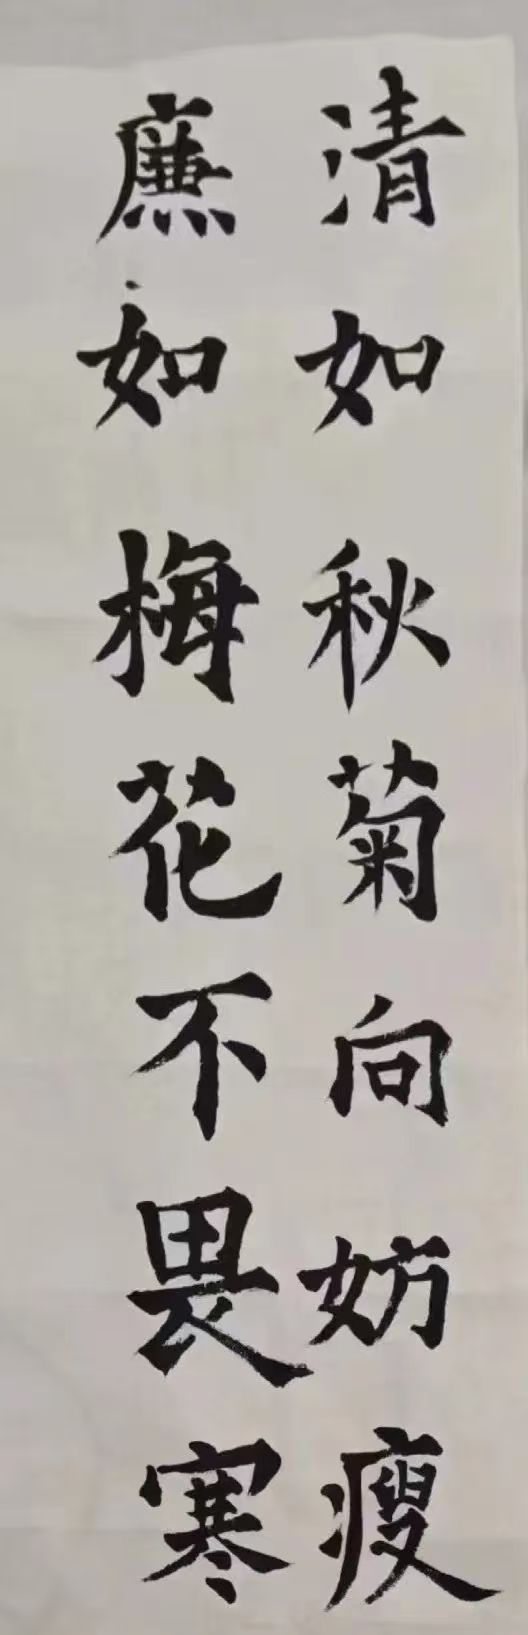 清如秋菊向妨瘦
廉如梅花不畏寒